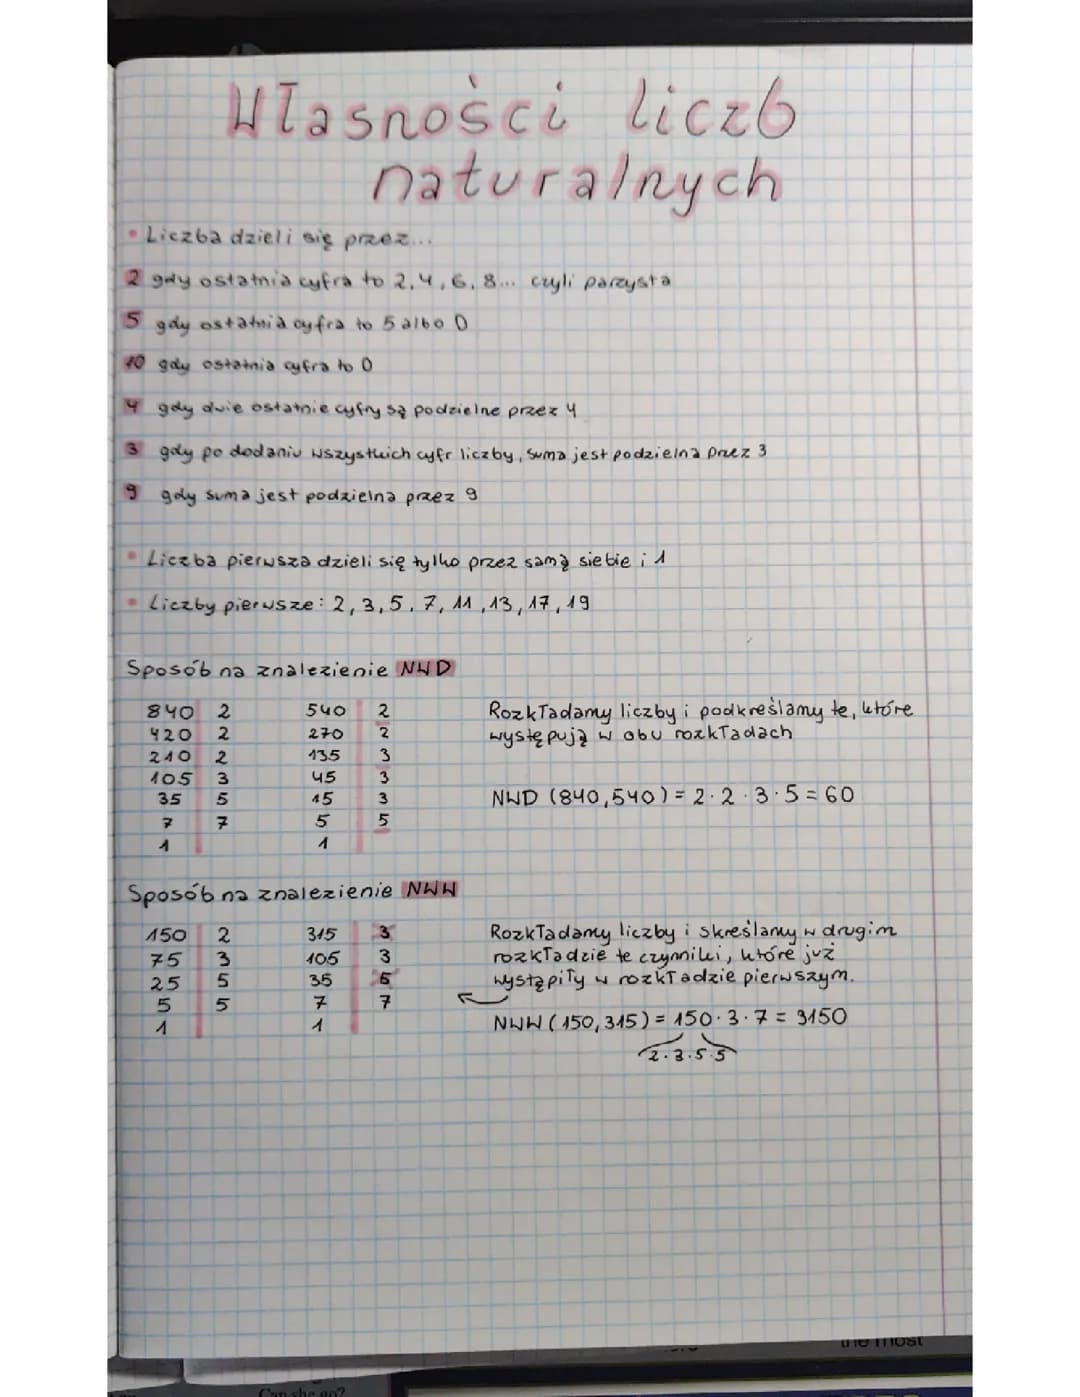 Własności liczb
naturalnych
• Liczba dzieli się przez...
2 gdy ostatnia cyfra to 2,4,6,8... czyli parzysta
5 gdy ostatnia cyfra to 5 albo 0
10 gdy ostatnia cyfra to 0
4 gdy dwie ostatnie cyfry są podzielne przez 4
3 gdy po dodaniu wszystkich cyfr liczby, suma jest podzielna przez 3
9 gdy suma jest podzielna przez 9
• Liczba pierwsza dzieli się tylko przez samą siebie i 1
• Liczby pierwsze: 2, 3, 5, 7, 11, 13, 17, 19
Sposób na znalezienie NWD
840 2 540 2
420 2 270 2
210 2 135 3
105 3 45 3
35 5 15 3
7 7 5 5
1 1
Rozkładamy liczby i podkreślamy te, które
występują w obu rozkładach
NWD (840,540) = 2·2·3·5 = 60
Sposób na znalezienie NWW
150 2 315 3
75 3 105 3
25 5 35 5
5 5 7 7
1 1
Rozkładamy liczby i skreślamy w drugim
rozkładzie te czynniki, które już
wystąpiły w rozkładzie pierwszym.
NWW (150,315) = 150·3·7 = 3150
2·3·5·5
the most
Can she go?